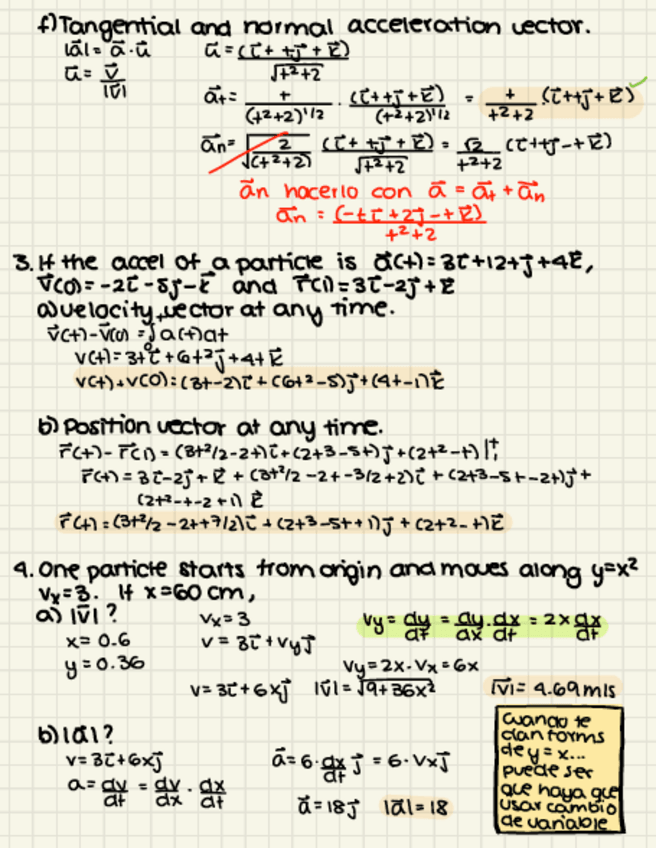 f) Tangential and normal acceleration vector.
|a⃗| = a⃗ · u⃗
u⃗ = v⃗/|v⃗|
u⃗ = (i⃗ + tj⃗ + k⃗)/√(t²+2)
a⃗t = t/(t²+2)^1/2 · (i⃗+tj⃗+k⃗)/(t²+2)^1/2 = t/(t²+2) (i⃗+tj⃗+k⃗) ✓
a⃗n = √(2/(t²+2)) (i⃗ + tj⃗ + k⃗)/√(t²+2) = √2/(t²+2) (i⃗+tj⃗-+k⃗)
a⃗n hacerlo con a⃗ = a⃗t + a⃗n
a⃗n = (-ti⃗+2j⃗-tk⃗)/(t²+2)
3. If the accel of a particle is a⃗(t)=3i⃗+12tj⃗+4k⃗,
v⃗(0)=-2i⃗-5j⃗-k⃗ and r⃗(1)=3i⃗-2j⃗+k⃗
a) velocity vector at any time.
v⃗(t)-v⃗(0) = ∫₀ a(t)dt
v(t)=3ti⃗+6t²j⃗+4tk⃗
v(t)+v(0)=(3t-2)i⃗+(6t²-5)j⃗+(4t-1)k⃗
b) Position vector at any time.
r⃗(t)-r⃗(1) = (3t²/2-2t)i⃗+(2t³-5t)j⃗+(2t²-t) |ᵗ₁
r⃗(t)=3i⃗-2j⃗+k⃗+(3t²/2-2t-3/2+2)i⃗+(2t³-5t-2t)j⃗+
(2t²-t-2+1) k⃗
r⃗(t)=(3t²/2-2t+7/2)i⃗+(2t³-5t+1)j⃗+(2t²-t)k⃗
4. One particle starts from origin and moves along y=x²
vx=3. If x=60 cm,
a) |v⃗|?
x= 0.6
y= 0.36
vx=3
v = 3i⃗+vyj⃗
vy= dy/dt = dy/dx · dx/dt = 2x dx/dt
vy=2x·vx=6x
v=3i⃗+6xj⃗ |v⃗|=√(9+36x²) |v⃗|= 4.69m/s
b) |a⃗|?
v=3i⃗+6xj⃗
a= dv/dt = dv/dx · dx/dt
a⃗=6·dx/dt j⃗ = 6·vxj⃗
a⃗=18j⃗ |a⃗|=18
cuando te
dan forms
de y=x...
puede ser
que haya que
usar cambio
de variable